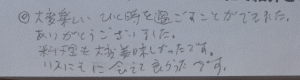 ◎大変楽しいひと時を過ごすことがでてきた。
ありがとうございました。
料理も大変美味しかったです。
リスにも会えて良かったです。